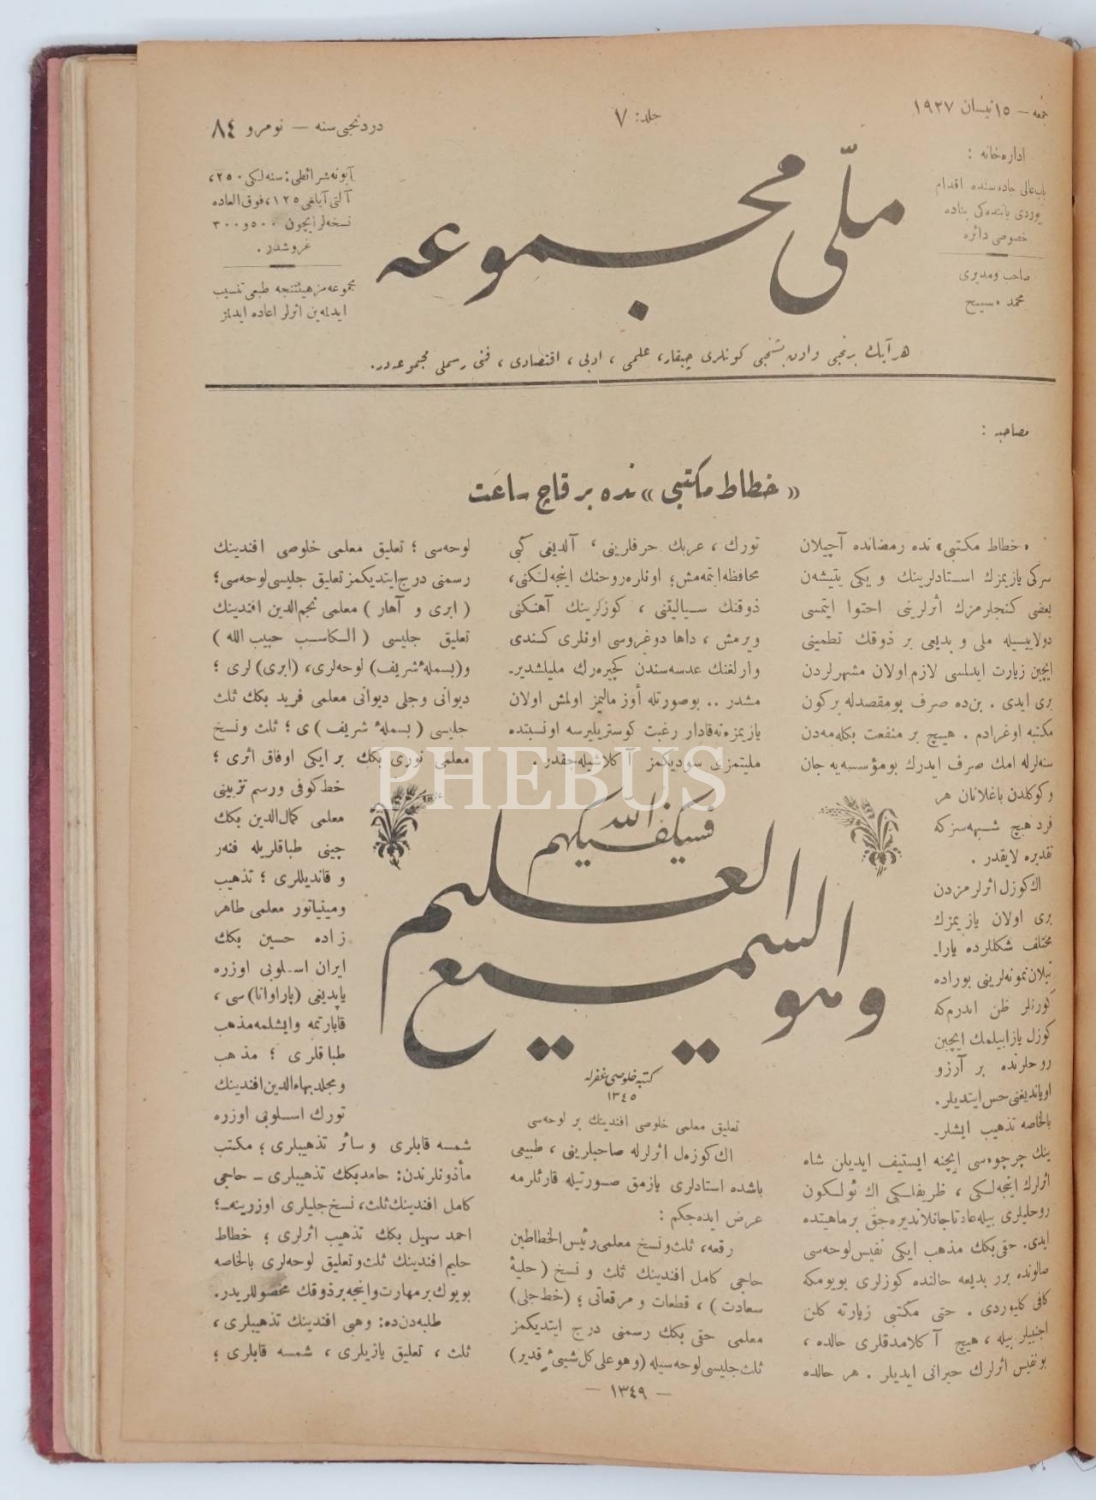 جمعه — ١٥ نیسان ١٩٢٧
جلد: ٧
دردنجی سنه — نومرو ٨٤
اداره خانه :
باب عالی جاده سنده اقدام
یوردی یاننده کی بناده
خصوصی دائره
صاحب و مدیری
محمد مسیح
ملّی مجموعه
آبونه شرائطی: سنه لکی ٢٥٠،
آلتی آیلغی ١٢٥، فوق العاده
نسخه لر ایچون ٥٠٠ و ٣٠٠
غروشدر .
مجموعه مز هیئتنجه طبعی تنسیب
ایدلمه ین اثرلر اعاده ایدلمز
هر آیك برنجی و اون بشنجی کونلری چیقار، علمی ، ادبی ، اقتصادی ، فنی رسملی مجموعه در.
مصاحبه :
« خطاط مکتبی » نده بر قاچ ساعت
«خطاط مکتبی» نده رمضانده آچیلان
سرکی یازیمزك استادلرینك و یکی یتیشه ن
بعضی کنجلرمزك اثرلرینی احتوا ایتمسی
دولاییسیله ملی و بدیعی بر ذوقك تطمینی
ایچین زیارت ایدلمسی لازم اولان مشهرلردن
بری ایدی . بن ده صرف بو مقصدله بر کون
مکتبه اوغرادم . هیچ بر منفعت بکله مه دن
سنه لرله امك صرف ایدرك بو مؤسسه یه جان
و کوکلدن باغلانان هر
فرد هیچ شبهه سز که
تقدیره لایقدر .
اك کوزل اثرلرمزدن
بری اولان یازیمزك
مختلف شکللرده یارا-
تیلان نمونه لرینی بوراده
کورنلر ظن ایدرم که
کوزل یازابیلمك ایچین
روحلرنده بر آرزو
اویاندیغنی حس ایتدیلر.
بالخاصه تذهیب ایشلر-
ینك چرچوه سی ایچنه ایستیف ایدیلن شاه
اثرلرك اینجه لکی ، ظریفلکی اك ئولکون
روحلیلری بیله عادتا جانلاندیره جق بر ماهیتده
ایدی. حقی بكك مذهب ایکی نفیس لوحه سی
صالونده برر بدیعه حالنده کوزلری بویومکه
کافی کلیوردی . حتی مکتبی زیارته کلن
اجنبیلر بیله ، هیچ آکلامدقلری حالده ،
بو نفیس اثرلرك حیرانی ایدیلر . هر حالده
تورك ، عربك حرفلرینی ، آلدیغی کبی
محافظه ایتمه مش؛ اونلره روحنك اینجه لکنی،
ذوقنك سیالیتنی ، کوزلرینك آهنکنی
ویرمش ، داها دوغروسی اونلری کندی
وارلغنك عدسه سندن کچیره رك ملیلشدیر-
مشدر .. بو صورتله أوز مالیمز اولمش اولان
یازیمزه نه قادار رغبت کوستریلیرسه او نسبتده
ملیتمزی سودیکمز آکلاشیله جقدر .
فسیکفیکهم الله
وهو السمیع العلیم
کتبه خلوصی غفرله
١٣٤٥
تعلیق معلمی خلوصی افندینك بر لوحه سی
اك کوزه ل اثرلرله صاحبلرینی ، طبیعی
باشده استادلری یازمق صورتیله قارئلرمه
عرض ایده جکم :
رقعه، ثلث و نسخ معلمی رئیس الخطاطین
حاجی کامل افندینك ثلث و نسخ ( حلیهٔ
سعادت ) ، قطعات و مرقعاتی ؛ (خط جلی)
معلمی حقی بكك رسمنی درج ایتدیکمز
ثلث جلیسی لوحه سیله (وهو علی کل شیئ قدیر)
لوحه سی ؛ تعلیق معلمی خلوصی افندینك
رسمنی درج ایتدیکمز تعلیق جلیسی لوحه سی؛
( ابری و آهار ) معلمی نجم الدین افندینك
تعلیق جلیسی ( الکاسب حبیب الله )
و(بسملهٔ شریف) لوحه لری، (ابری) لری ؛
دیوانی و جلی دیوانی معلمی فرید بكك ثلث
جلیسی ( بسملهٔ شریف ) ی ؛ ثلث و نسخ
معلمی نوری بكك بر ایکی اوفاق اثری ؛
خط کوفی و رسم تزیینی
معلمی کمال الدین بكك
چینی طباقلریله فنه ر
و قاندیللری ؛ تذهیب
و مینیاتور معلمی طاهر
زاده حسین بكك
ایران اسلوبی اوزره
یاپدیغی (پاراوانا) سی ،
قابارتمه و ایشلمه مذهب
طباقلری ؛ مذهب
و مجلد بهاءالدین افندینك
تورك اسلوبی اوزره
شمسه قابلری و سائر تذهیبلری ؛ مکتب
مأذونلرندن: حامد بكك تذهیبلری – حاجی
کامل افندینك ثلث، نسخ جلیلری اوزرینه –؛
احمد سهیل بكك تذهیب اثرلری ؛ خطاط
حلیم افندینك ثلث و تعلیق لوحه لری بالخاصه
بویوك بر مهارت و اینجه بر ذوقك محصوللریدر.
طلبه دن ده: وهبی افندینك تذهیبلری ،
ثلث ، تعلیق یازیلری ، شمسه قابلری ؛
— ١٣٤٩ —
PHEBUS